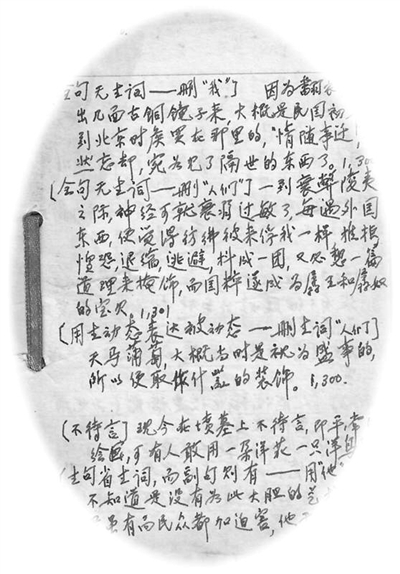 句无主词——删“我”] 因为翻
出几面古铜镜子来,大概是民国初
到北京时候买在那里的,“情随事迁
忘却,宛如见了隔世的东西了。1,30
[全句无主词——删“人们”] 一到衰弊陵夷
之际,神经可就衰弱过敏了,每遇外国
东西,便觉得彷彿彼来俘我一样,推拒
惶恐退缩,逃避,抖成一团,又必想一篇
道理来掩饰,而国粹遂成为孱王和孱奴
的宝贝。1,301
[用主动态表达被动态——删主词“人们”]
天马蒲萄,大概当时是视为盛事的,
所以便取作什器的装饰。1,300.
[不待言] 现今在坟墓上不待言,即平常
绘画,可有人敢用一朵洋花一只洋
主句省主词,而副句则有——用“他
不知道是没有为此大胆的
虽有而民众都加迫害,他